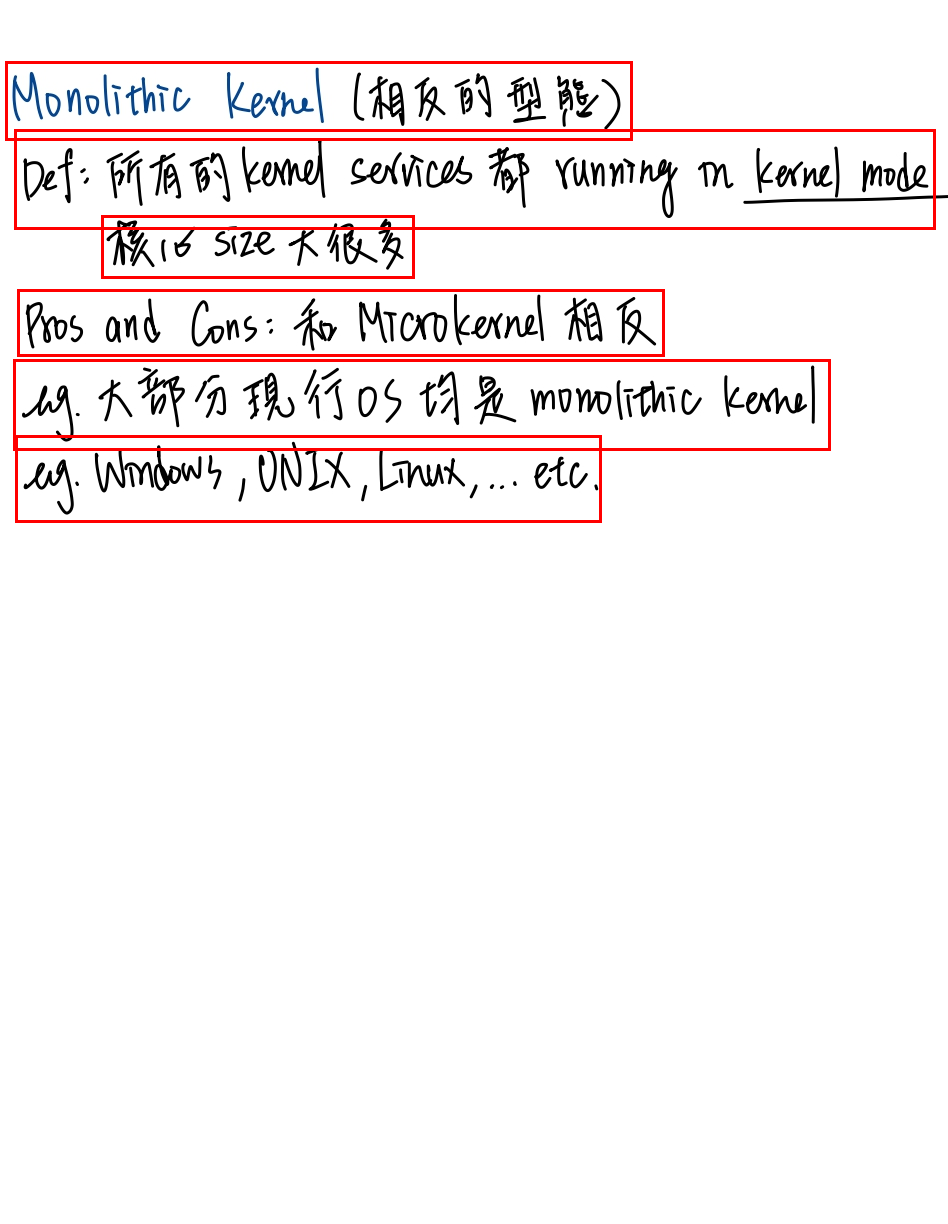 Monolithic kernel (相反的型態)
Def: 所有的 kernel services 都 running in kernel mode
核心 size 大很多
Pros and Cons: 和 Microkernel 相反
eg. 大部分現行 OS 均是 monolithic kernel
eg. Windows, UNIX, Linux, ... etc.